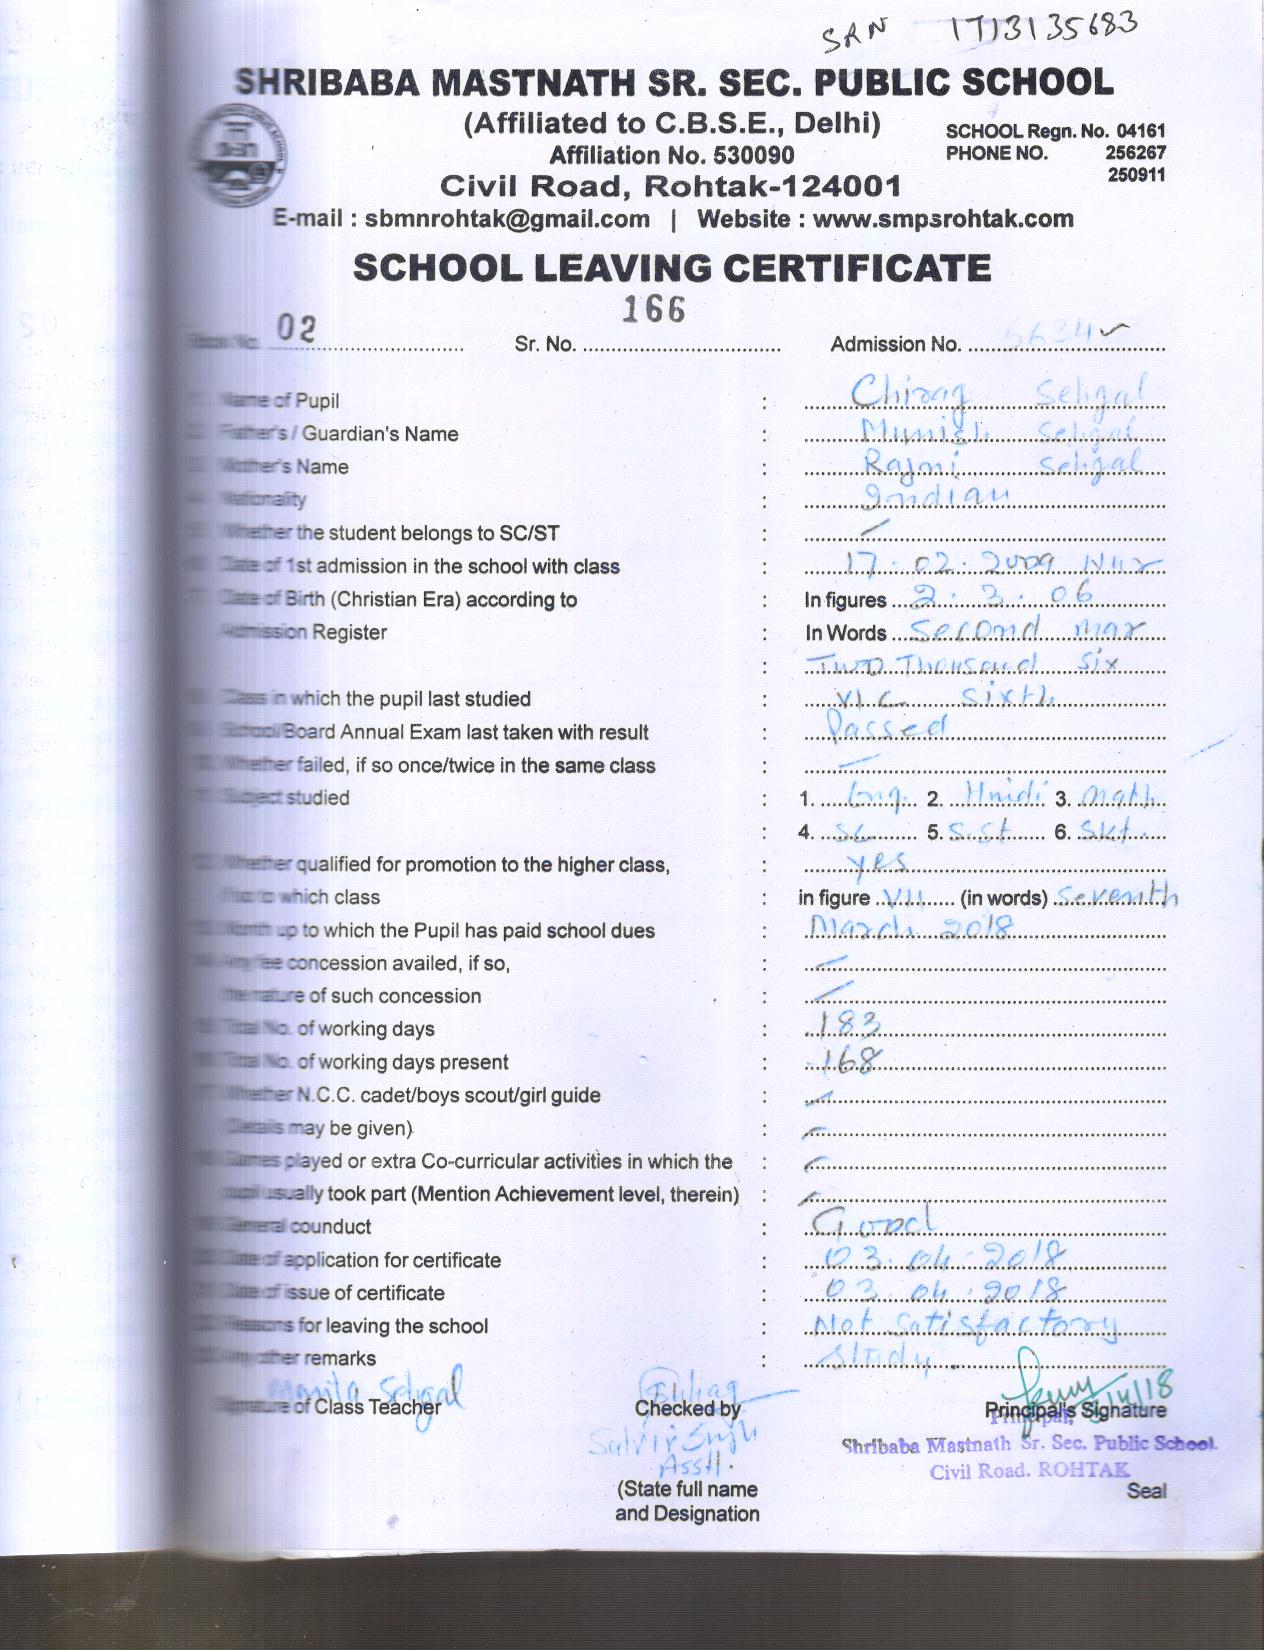 SRN 1713135683
SHRIBABA MASTNATH SR. SEC. PUBLIC SCHOOL
(Affiliated to C.B.S.E., Delhi)
SCHOOL Regn. No. 04161
Affiliation No. 530090
PHONE NO. 256267
250911
Civil Road, Rohtak-124001
E-mail : sbmnrohtak@gmail.com | Website : www.smpsrohtak.com
SCHOOL LEAVING CERTIFICATE
166
02 Sr. No. Admission No. 5634
Name of Pupil : Chirag Sehgal
Father's / Guardian's Name : Munish Sehgal
Mother's Name : Rajni Sehgal
Nationality : Indian
Whether the student belongs to SC/ST :
Date of 1st admission in the school with class : 17.02.2009 Nur
Date of Birth (Christian Era) according to : In figures 2.3.06
Admission Register : In Words Second mar
: Two Thousand Six
Class in which the pupil last studied : VI C Sixth
School/Board Annual Exam last taken with result : Passed
Whether failed, if so once/twice in the same class :
Subject studied : 1. Eng. 2. Hindi 3. Math
: 4. SC 5. S.St 6. Skt.
Whether qualified for promotion to the higher class, : yes
which class : in figure VII (in words) Seventh
Month up to which the Pupil has paid school dues : March 2018
Any fee concession availed, if so, :
the nature of such concession :
Total No. of working days : 183
Total No. of working days present : 168
Whether N.C.C. cadet/boys scout/girl guide :
(Details may be given) :
Games played or extra Co-curricular activities in which the :
pupil usually took part (Mention Achievement level, therein) :
General counduct : Good
Date of application for certificate : 03.04.2018
Date of issue of certificate : 03.04.2018
Reasons for leaving the school : Not Satisfactory
Any other remarks : Study.
Sehgal
Signature of Class Teacher Checked by Principal's Signature
Principal,
Shribaba Mastnath Sr. Sec. Public School
Asstt.
Civil Road. ROHTAK
(State full name Seal
and Designation